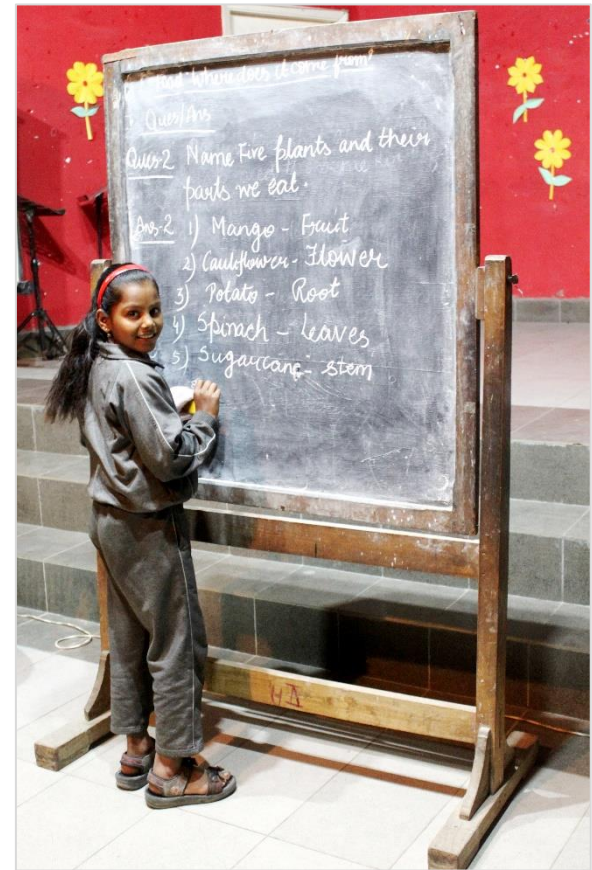 Where does it come from?
Ques/Ans
Ques-2 Name Five plants and their
parts we eat.
Ans-2 1) Mango - Fruit
2) Cauliflower - Flower
3) Potato - Root
4) Spinach - Leaves
5) Sugarcane - stem
HA